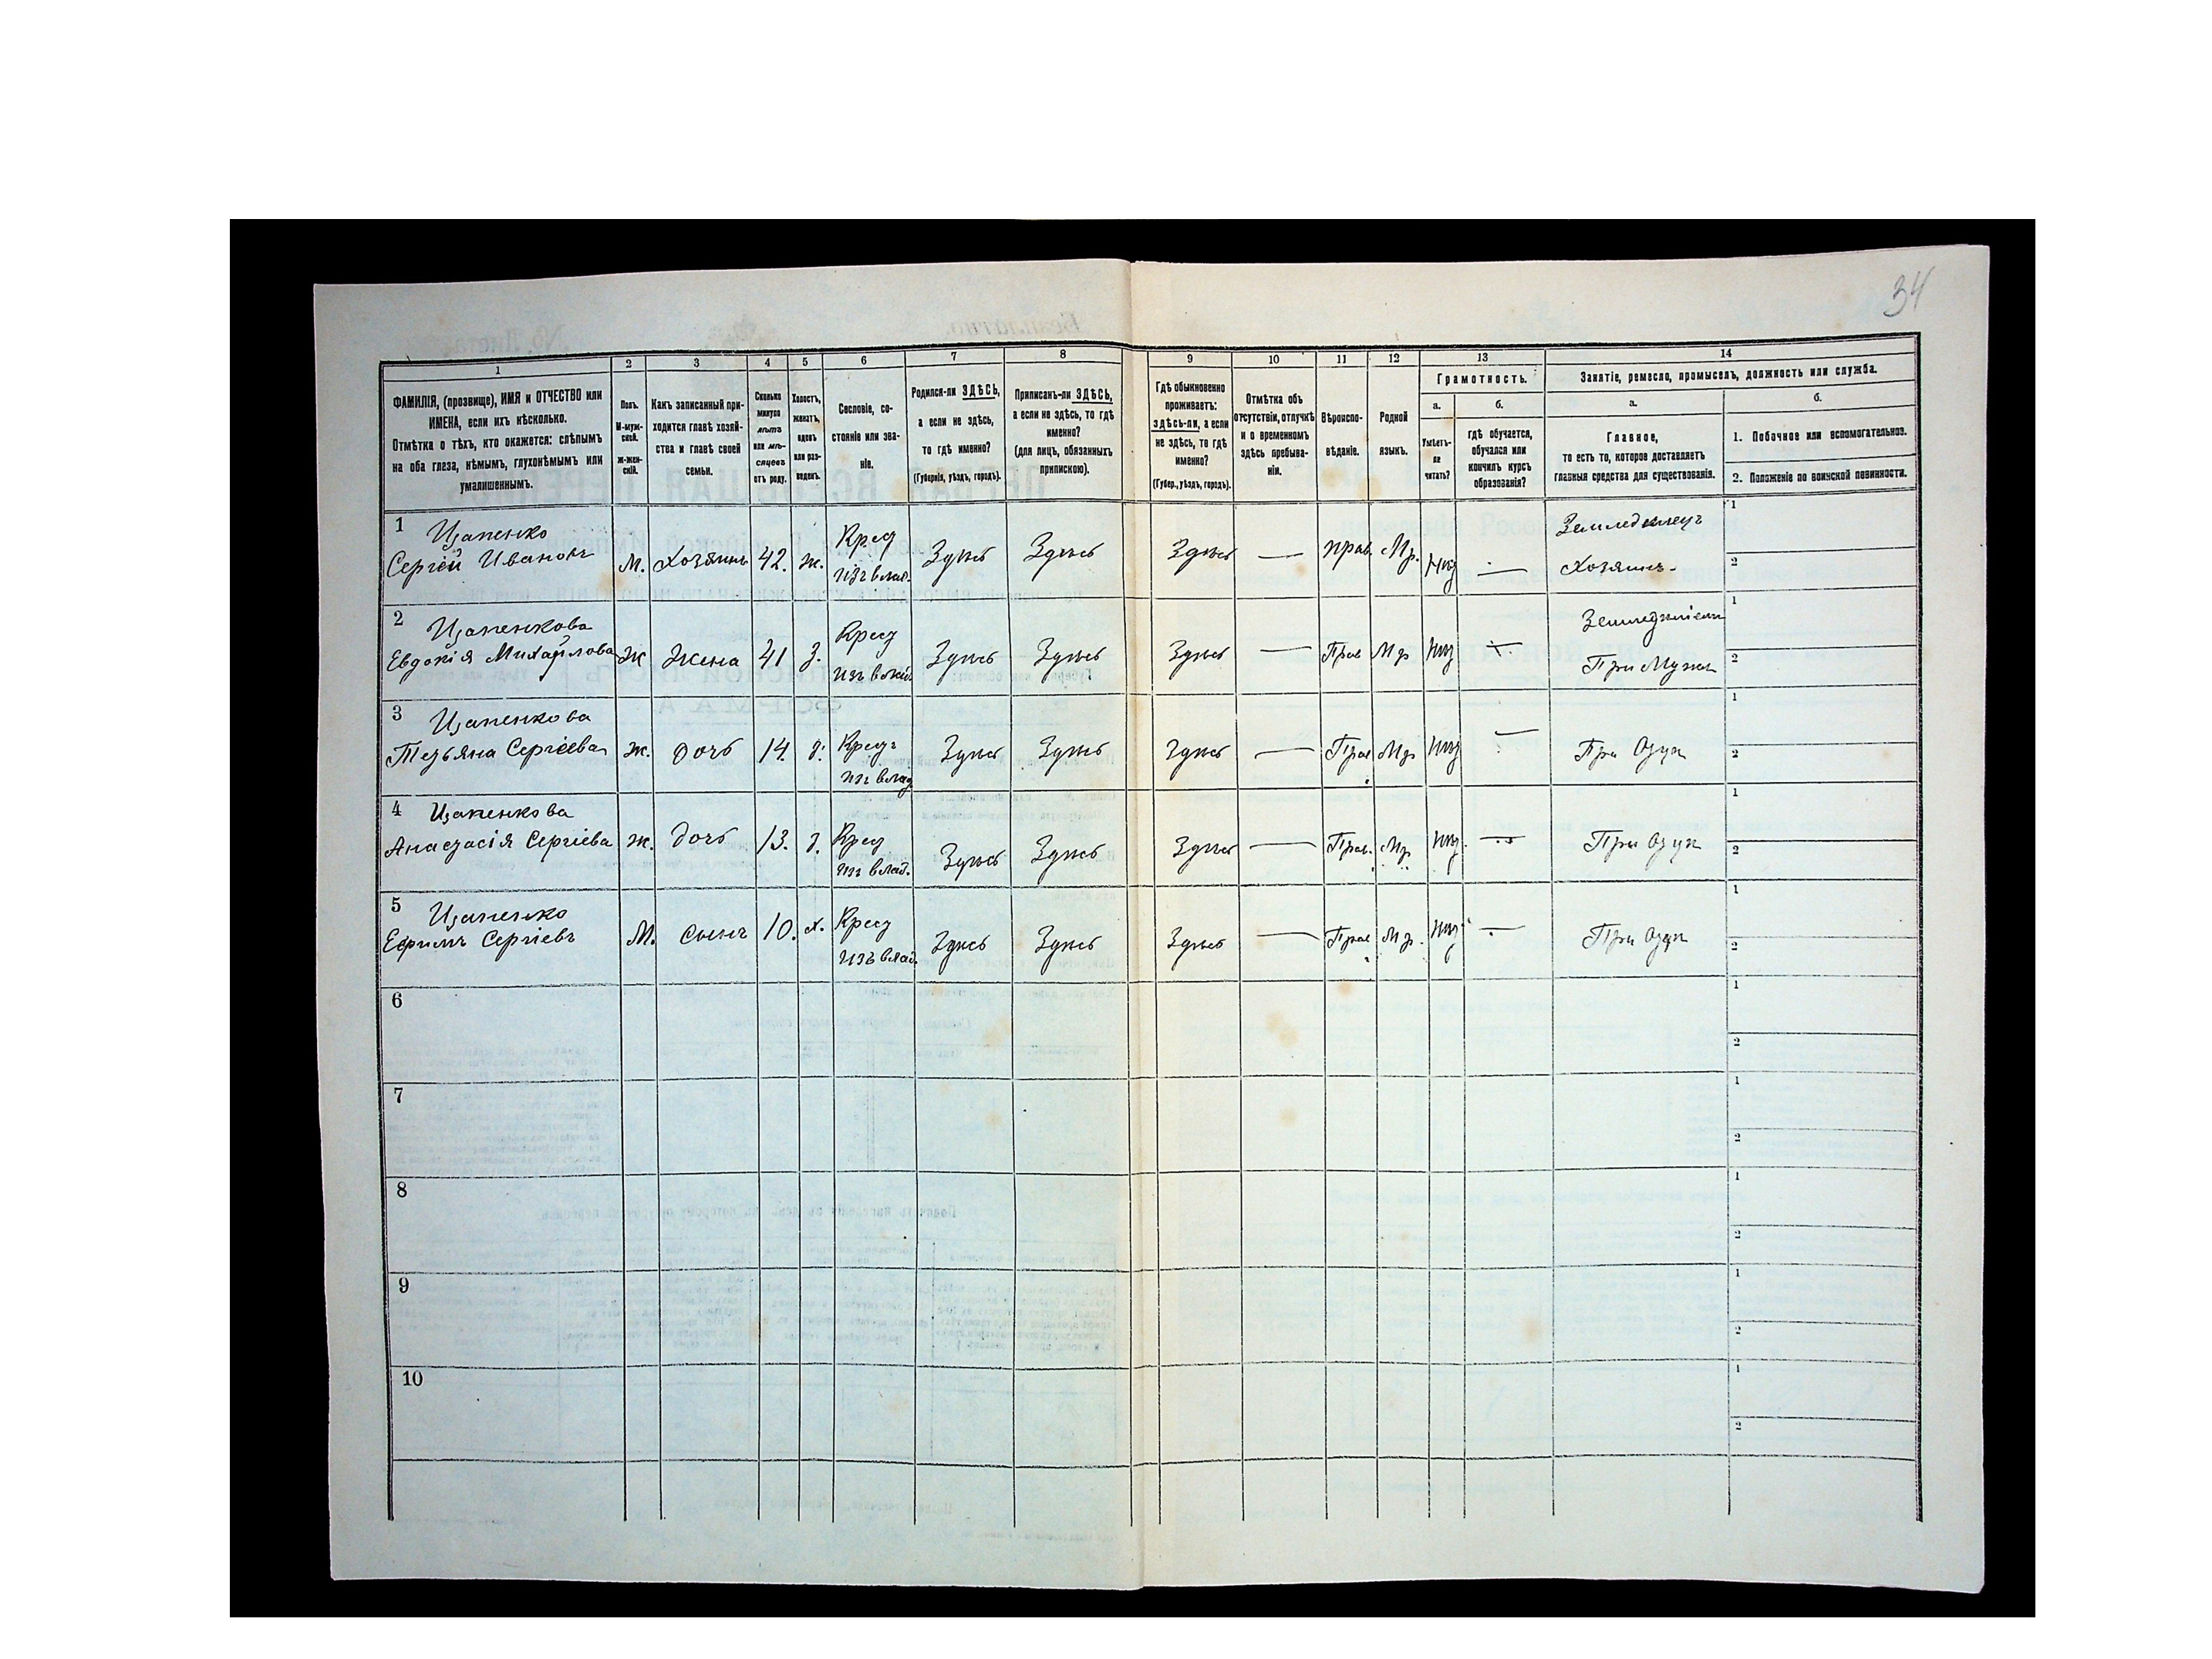 34
1
2
3
4
5
6
7
8
9
10
11
12
13
14
ФАМИЛІЯ, (прозвище), ИМЯ и ОТЧЕСТВО или
ИМЕНА, если ихъ нѣсколько.
Отмѣтка о тѣхъ, кто окажется: слѣпымъ
на оба глаза, нѣмымъ, глухонѣмымъ или
умалишеннымъ.
Полъ.
М-муж-
ской.
Ж-жен-
скій.
Какъ записанный при-
ходится главѣ хозяй-
ства и главѣ своей
семьи.
Сколько
минуло
лѣтъ
или мѣ-
сяцевъ
отъ роду.
Холостъ,
женатъ,
вдовъ
или раз-
веденъ.
Сословіе, со-
стояніе или зва-
ніе.
Родился-ли ЗДѢСЬ,
а если не здѣсь,
то гдѣ именно?
(Губернія, уѣздъ, городъ).
Приписанъ-ли ЗДѢСЬ,
а если не здѣсь, то гдѣ
именно?
(для лицъ, обязанныхъ
припискою).
Гдѣ обыкновенно
проживаетъ:
здѣсь-ли, а если
не здѣсь, то гдѣ
именно?
(Губер., уѣздъ, городъ).
Отмѣтка объ
отсутствіи, отлучкѣ
и о временномъ
здѣсь пребыва-
ніи.
Вѣроиспо-
вѣданіе.
Родной
языкъ.
Грамотность.
а.
Умѣетъ-
ли
читать?
б.
гдѣ обучается,
обучался или
кончилъ курсъ
образованія?
Занятіе, ремесло, промыселъ, должность или служба.
а.
Главное,
то есть то, которое доставляетъ
главныя средства для существованія.
б.
1. Побочное или вспомогательное.
2. Положеніе по воинской повинности.
1 Цапенко
Сергѣй Ивановъ М. Хозяинъ 42. ж. Крест изъ влад. Здѣсь Здѣсь Здѣсь — прав. Мр. Нѣт — Земледѣлецъ Хозяинъ. 1 2
2 Цапенкова
Евдокія Михайлова Ж Жена 41 з. Крест изъ влад. Здѣсь Здѣсь Здѣсь — Прав Мр Нѣт — При Мужѣ 1 2
3 Цапенкова
Тетьяна Сергіева ж. дочь 14. д. Крест изъ влад Здѣсь Здѣсь Здѣсь — Прав Мр Нѣт — При Отцѣ 1 2
4 Цапенкова
Анастасія Сергіева ж. дочь 13. д. Крест изъ влад. Здѣсь Здѣсь Здѣсь — Прав. Мр Нѣт — При Отцѣ 1 2
5 Цапенко
Ефимъ Сергіевъ М. Сынъ 10. х. Крест изъ влад. Здѣсь Здѣсь Здѣсь — Прав Мр. Нѣт — При Отцѣ 1 2
6 1 2
7 1 2
8 1 2
9 1 2
10 1 2